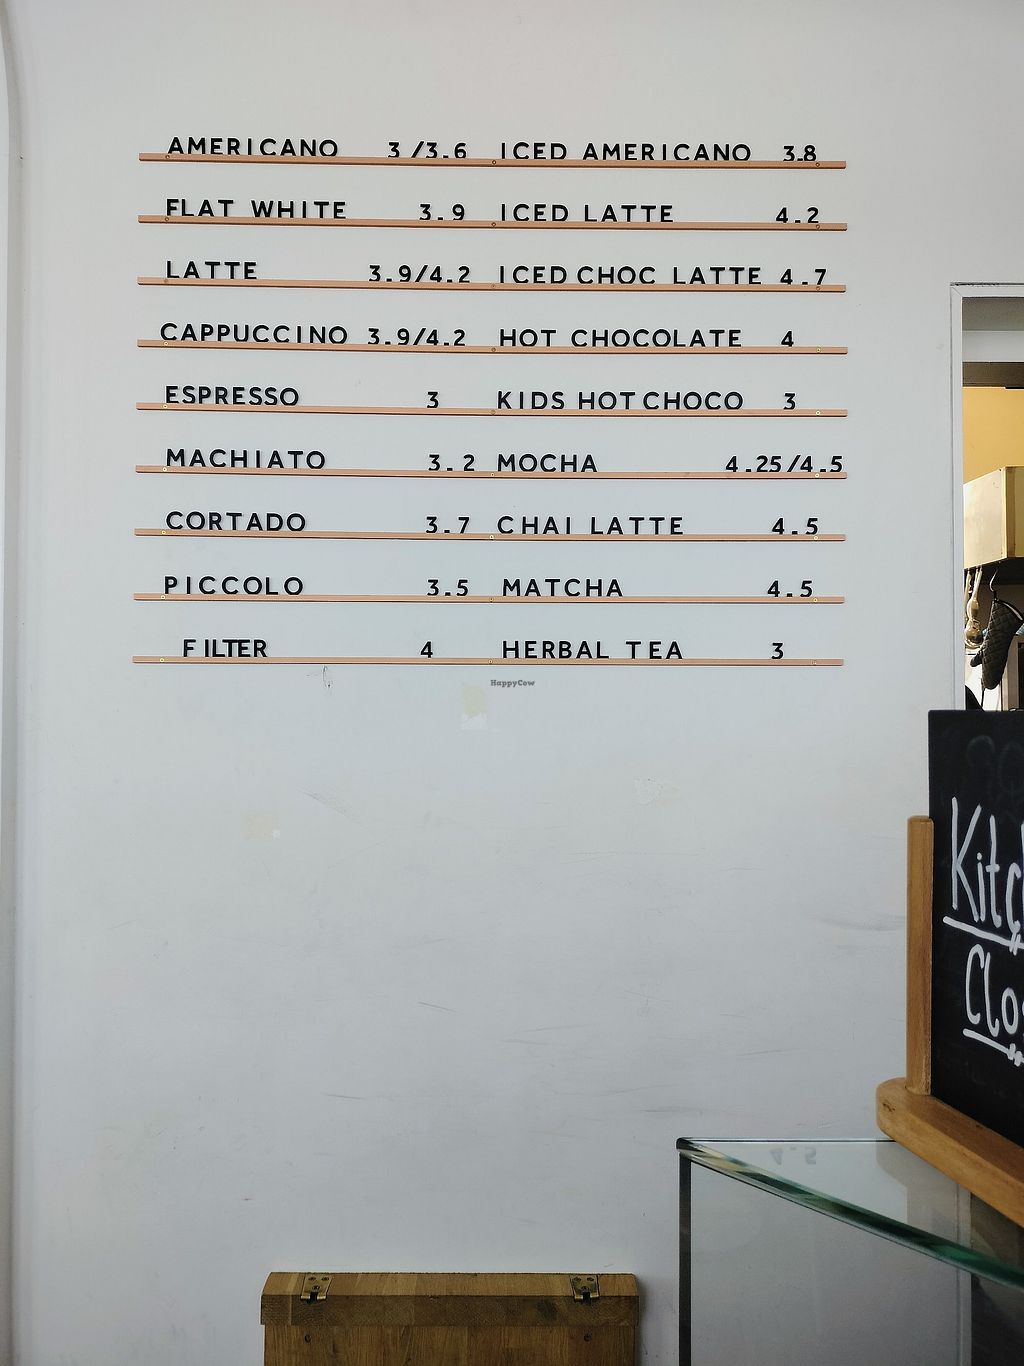 AMERICANO 3/3.6 ICED AMERICANO 3.8
FLAT WHITE 3.9 ICED LATTE 4.2
LATTE 3.9/4.2 ICED CHOC LATTE 4.7
CAPPUCCINO 3.9/4.2 HOT CHOCOLATE 4
ESPRESSO 3 KIDS HOT CHOCO 3
MACHIATO 3.2 MOCHA 4.25/4.5
CORTADO 3.7 CHAI LATTE 4.5
PICCOLO 3.5 MATCHA 4.5
FILTER 4 HERBAL TEA 3
HappyCow